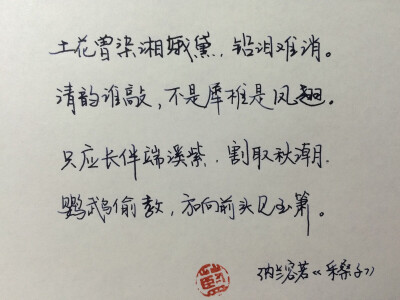 土花曾染湘娥黛，铅泪难消。
清韵谁敲，不是犀椎是凤翘。
只应长伴端溪紫，割取秋潮。
鹦鹉偷教，方向前头见玉箫。
纳兰容若《采桑子》